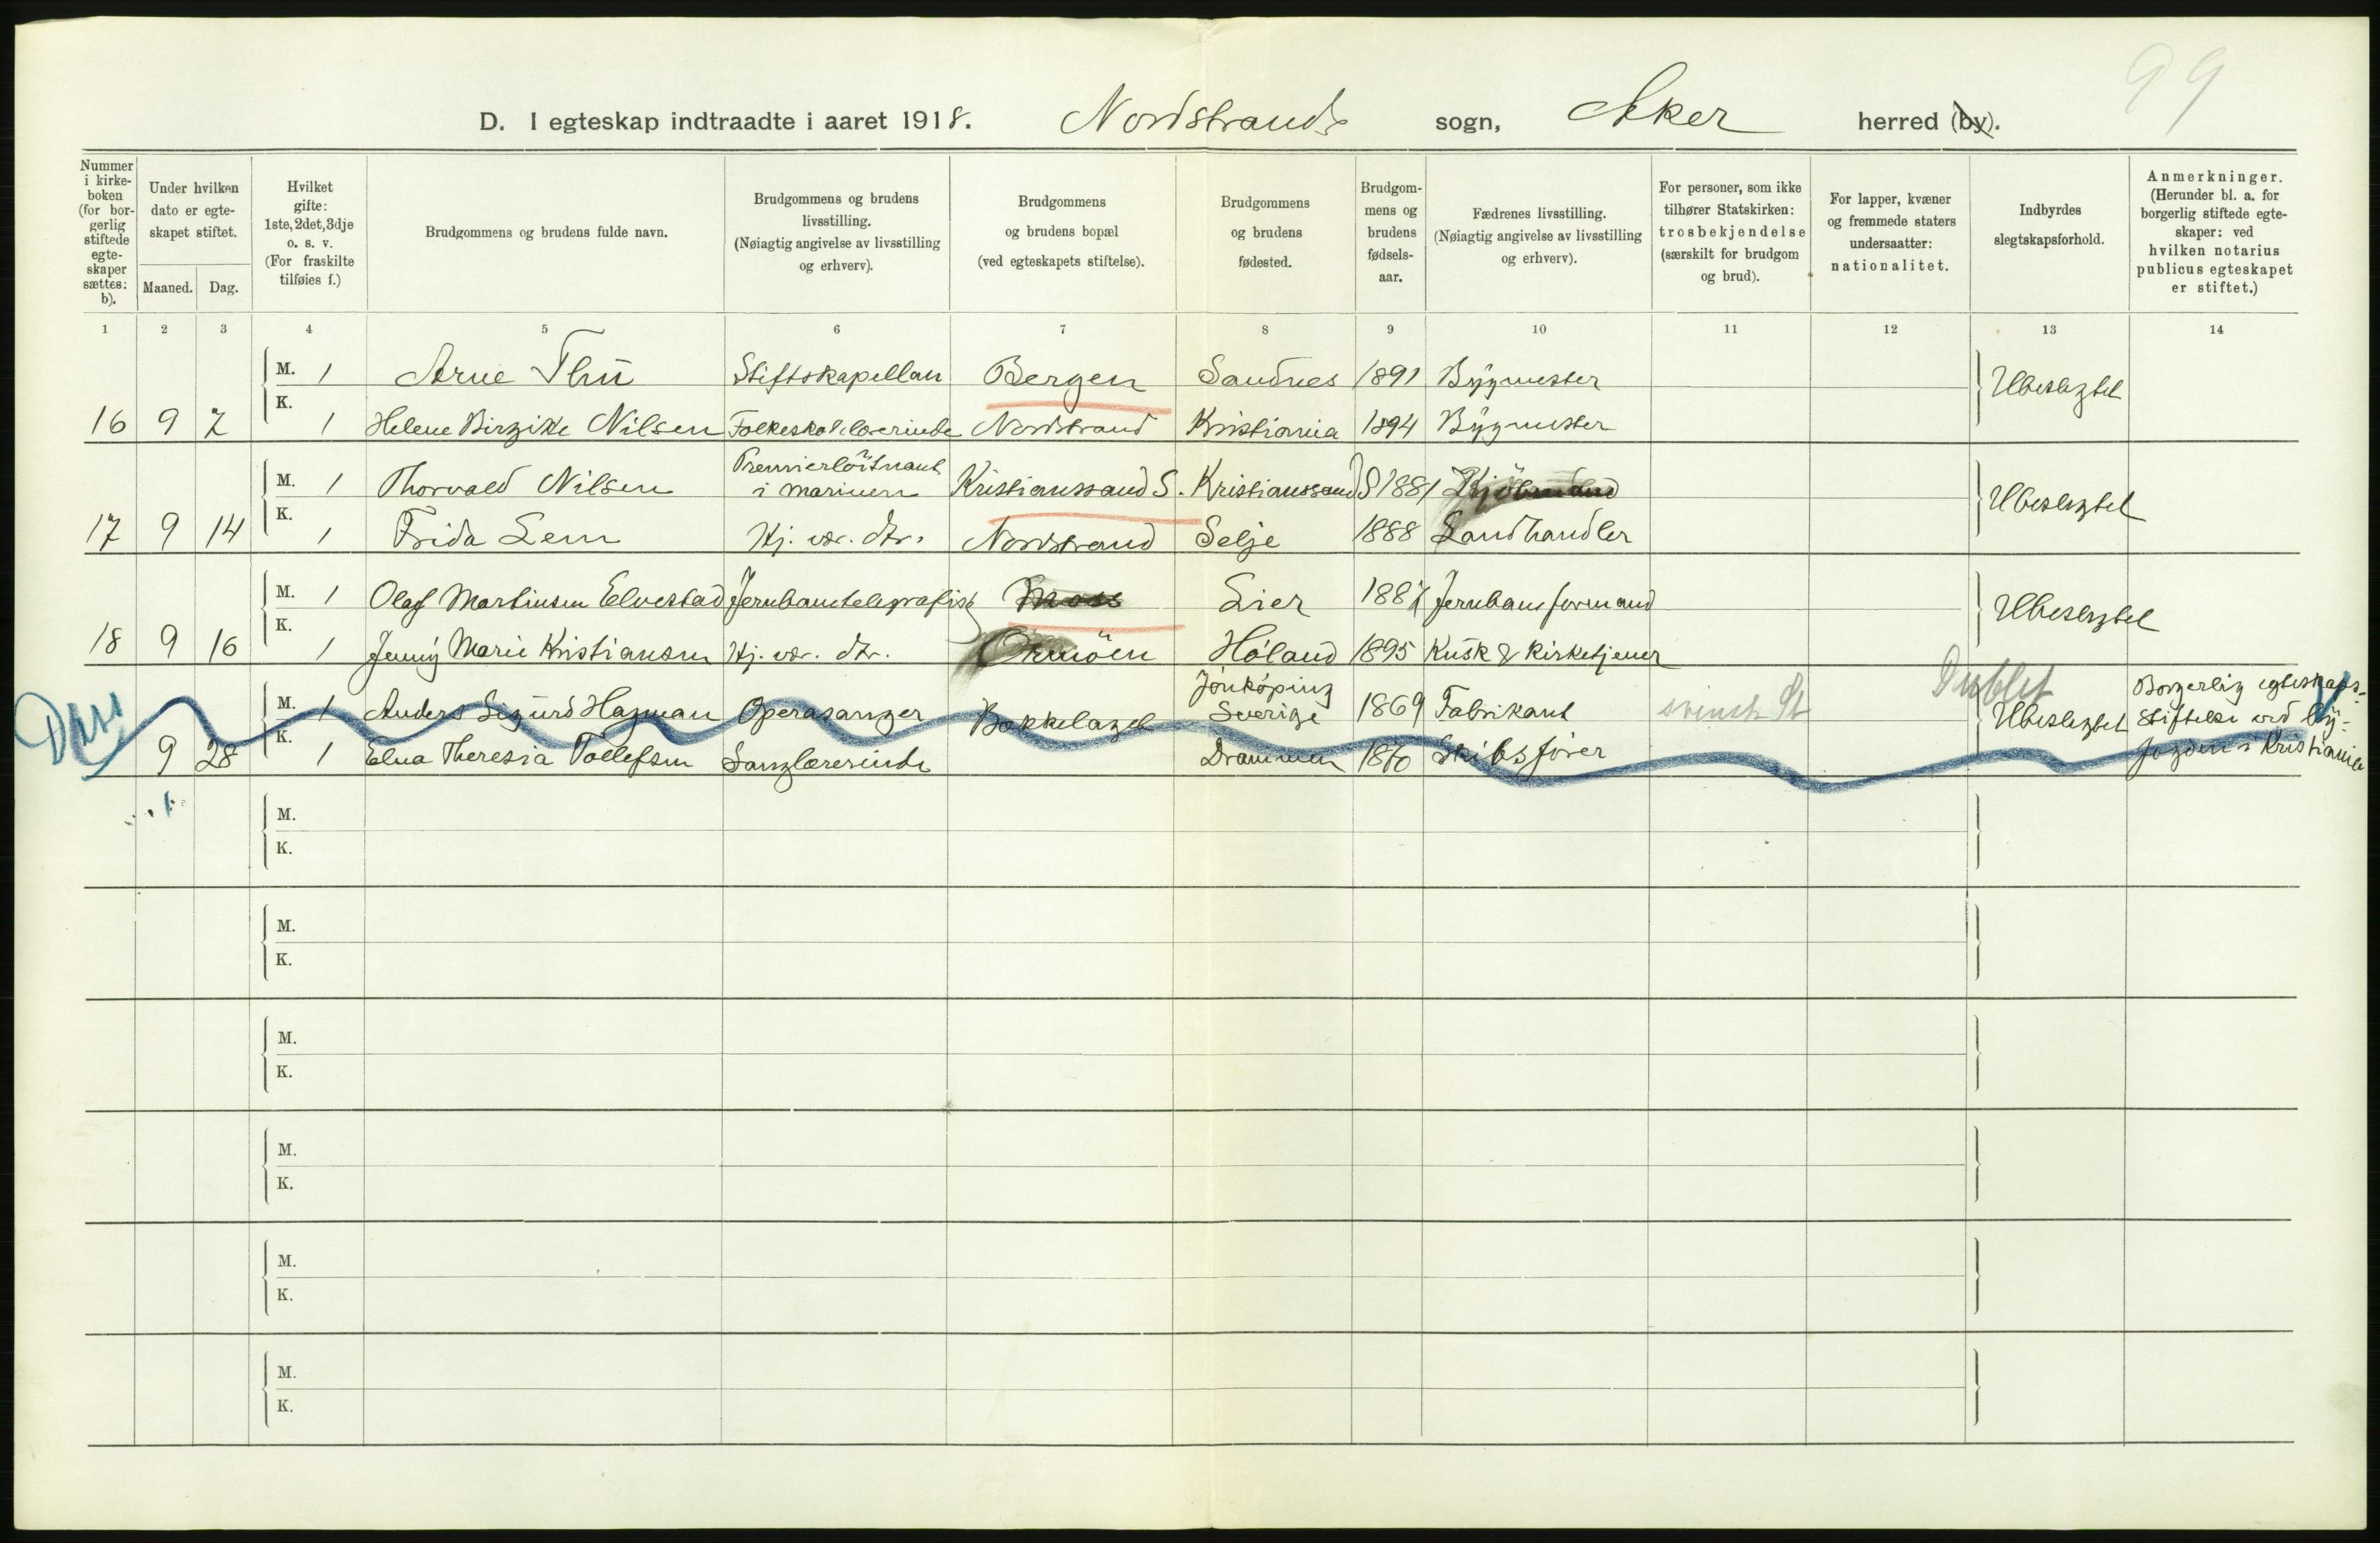 99
D. I egteskap indtraadte i aaret 1918. Nordstrands sogn, Aker herred (by).
Nummer i kirke-boken (for bor-gerlig stiftede egte-skaper sættes: b).
Under hvilken dato er egte-skapet stiftet.
Maaned. Dag.
Hvilket gifte: 1ste, 2det, 3dje o. s. v. (For fraskilte tilføies f.)
Brudgommens og brudens fulde navn.
Brudgommens og brudens livsstilling. (Nøiagtig angivelse av livsstilling og erhverv).
Brudgommens og brudens bopæl (ved egteskapets stiftelse).
Brudgommens og brudens fødested.
Brudgom-mens og brudens fødsels-aar.
Fædrenes livsstilling. (Nøiagtig angivelse av livsstilling og erhverv).
For personer, som ikke tilhører Statskirken: trosbekjendelse (særskilt for brudgom og brud).
For lapper, kvæner og fremmede staters undersaatter: nationalitet.
Indbyrdes slegtskapsforhold.
Anmerkninger. (Herunder bl. a. for borgerlig stiftede egte-skaper: ved hvilken notarius publicus egteskapet er stiftet.)
1 2 3 4 5 6 7 8 9 10 11 12 13 14
M. 1 Arne Thu Stiftskapellan Bergen Sandnes 1891 Bygmester Ubeslegtet
16 9 7 K. 1 Helene Birgitte Nilsen Folkeskolelærerinde Nordstrand Kristiania 1894 Bygmester
Premierløitnant
M. 1 Thorvald Nilsen i marinen Kristianssand S. Kristianssand S 1881 Kjøbmand Ubeslegtet
17 9 14 K. 1 Frida Lem Hj. vær. dtr. Nordstrand Selje 1888 Landhandler
M. 1 Olaf Martinsen Elvestad Jernbanetelegrafist Moss Lier 1887 Jernbaneformand Ubeslegtet
18 9 16 K. 1 Jenny Marie Kristiansen Hj. vær. dtr. Ormöen Høland 1895 Kusk & Kirketjener
Jönköping Dublet Borgerlig egteskaps-
M. 1 Anders Sigurd Hagman Operasanger Bækkelaget Sverige 1869 Fabrikant svensk St Ubeslegtet stiftelse ved by-
9 28 K. 1 Elna Theresia Tollefsen Sanglærerinde Drammen 1870 Skibsfører fogden i Kristiania
M.
K.
M.
K.
M.
K.
M.
K.
M.
K.
M.
K.